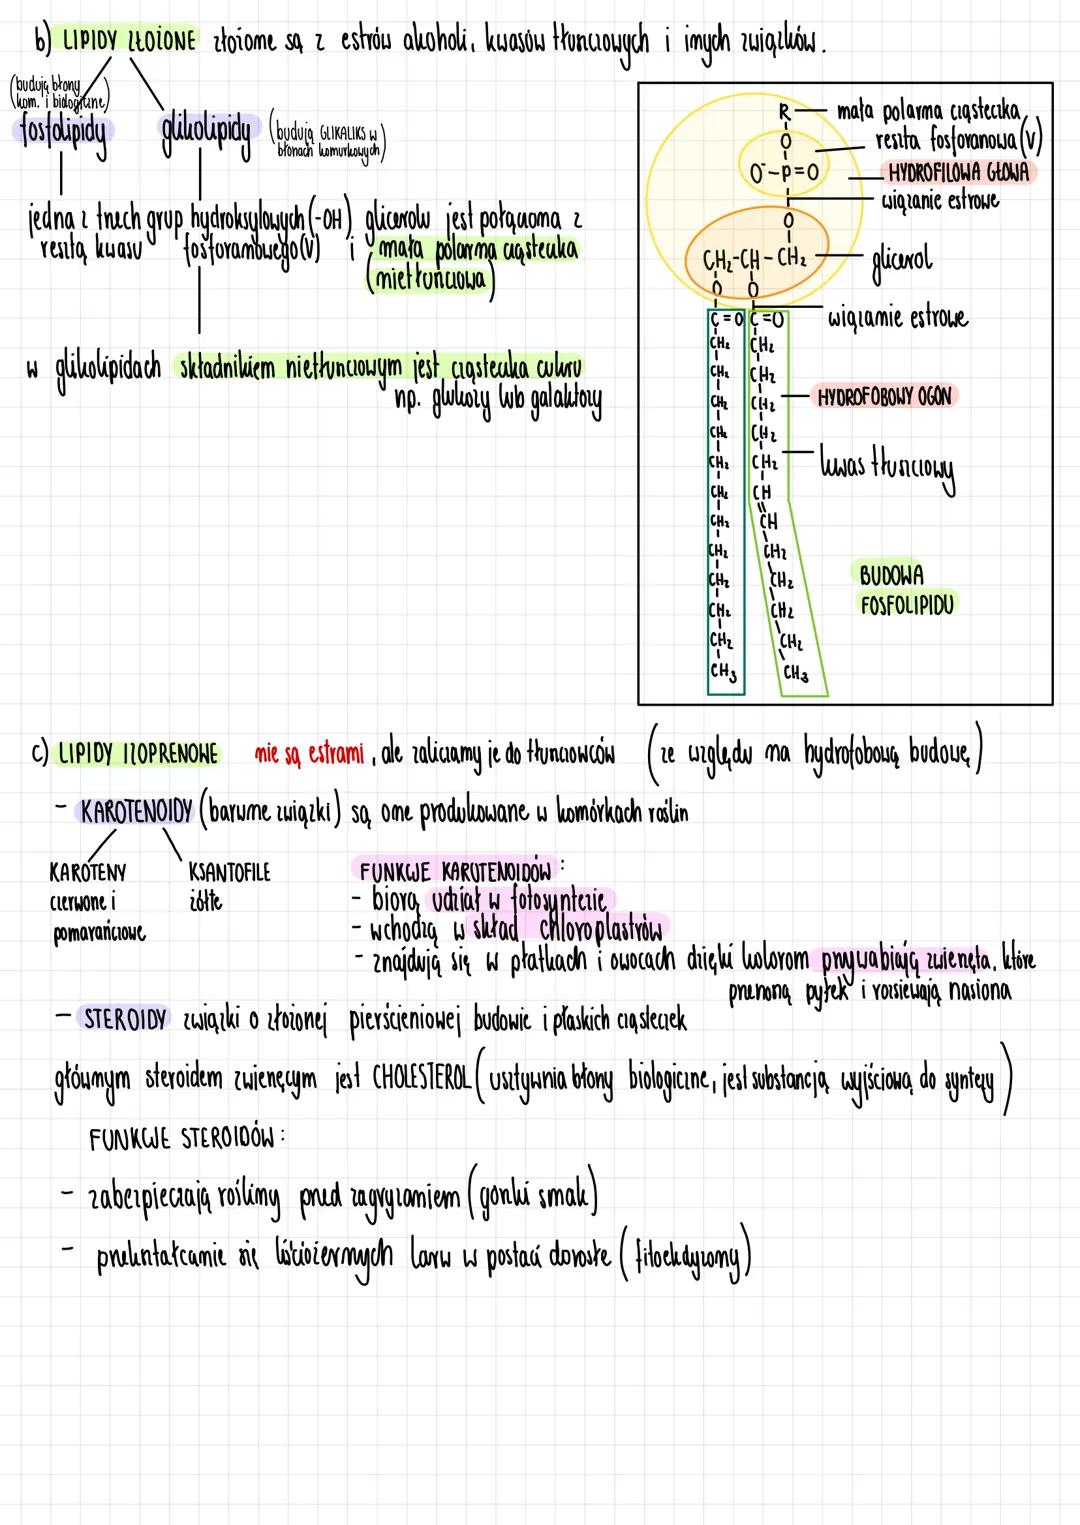 b) LIPIDY ZŁOŻONE złożone są z estrów alkoholi, kwasów tłuszczowych i innych związków.
(budują błony kom. i biologiczne)
fosfolipidy
glikolipidy (budują GLIKALIKS w błonach komurkowych)
jedna z trzech grup hydroksylowych (-OH) glicerolu jest połączona z
resztą kwasu fosforanowego (V) i mała polarna cząsteczka
(nietłuszczowa)
w glikolipidach składnikiem nietłuszczowym jest cząsteczka cukru
np. glukozy lub galaktozy
R
O
O⁻-P=O
O
CH₂-CH-CH₂
O O
C=O C=O
CH₂ CH₂
CH₂ CH₂
CH₂ CH₂
CH₂ CH₂
CH₂ CH₂
CH₂ CH
CH₂ CH
CH₂ CH₂
CH₂ CH₂
CH₂ CH₂
CH₂ CH₂
CH₃ CH₃
mała polarna cząsteczka
reszta fosforanowa (V)
HYDROFILOWA GŁOWA
wiązanie estrowe
glicerol
wiązanie estrowe
HYDROFOBOWY OGON
kwas tłuszczowy
BUDOWA
FOSFOLIPIDU
c) LIPIDY IZOPRENOWE nie są estrami, ale zaliczamy je do tłuszczowców (ze względu na hydrofobową budowę)
- KAROTENOIDY (barwne związki) są one produkowane w komórkach roślin
KAROTENY
czerwone i
pomarańczowe
KSANTOFILE
żółte
FUNKCJE KAROTENOIDÓW:
- biorą udział w fotosyntezie
- wchodzą w skład chloroplastrów
- znajdują się w płatkach i owocach dzięki kolorom przywabiają zwierzęta, które
przenoszą pyłek i rozsiewają nasiona
- STEROIDY związki o złożonej pierścieniowej budowie i płaskich cząsteczek
głównym steroidem zwierzęcym jest CHOLESTEROL (usztywnia błony biologiczne, jest substancją wyjściową do syntezy)
FUNKCJE STEROIDÓW:
- zabezpieczają rośliny przed zagryzaniem (gorzki smak)
- przekształcanie się liściożernych larw w postaci dorosłe (fitoekdyzony)